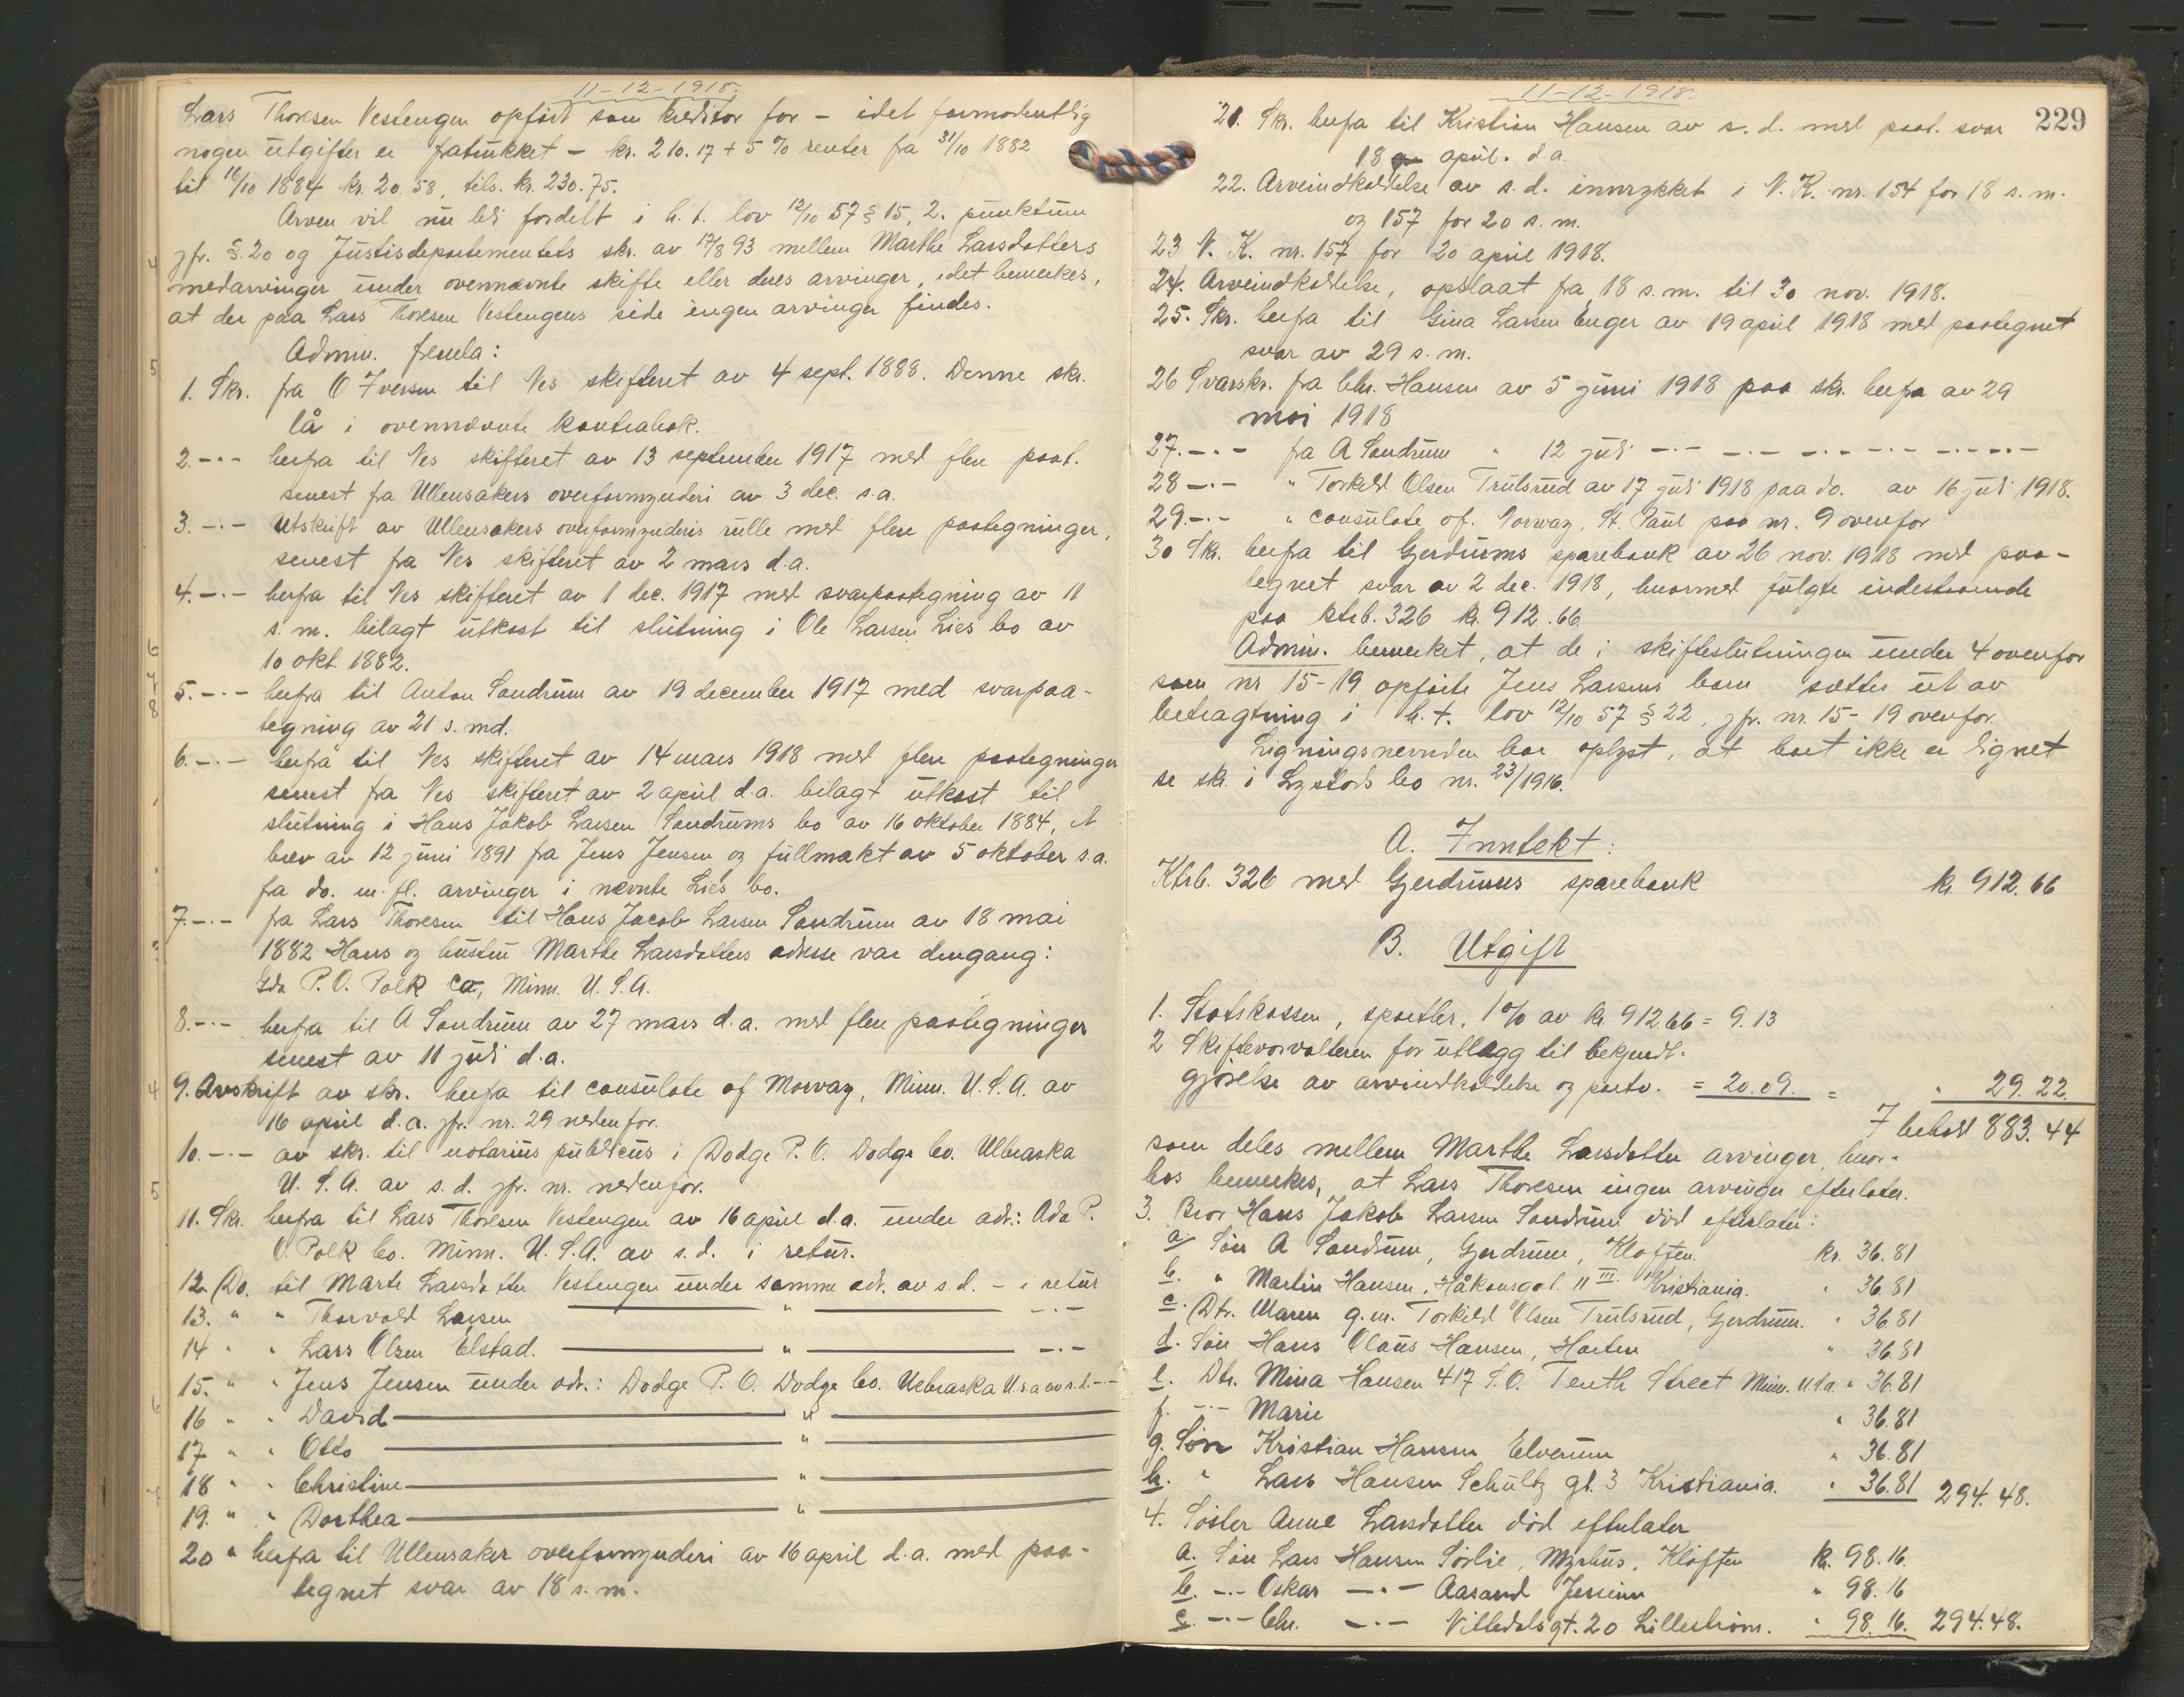 11-12-1918.
Lars Thoresen Vestengen opført som kreditor for - idet formodentlig
nogen utgifter er fratrukket - kr. 210.17 + 5 % renter fra 31/10 1882
til 16/10 1884 kr. 20.58, tils. kr. 230.75.
Arven vil nu bli fordelt i h. t. lov 12/10 57 § 15, 2. punktum
jfr. § 20 og Justisdepartementets skr. av 17/8 93 mellem Marthe Larsdatters
medarvinger under ovennævnte skifte eller deres arvinger, idet bemerkes,
at der paa Lars Thoresen Vestengens side ingen arvinger findes.
Admin. fremla:
1. Skr. fra O Iversen til Nes skifteret av 4 sept. 1888. Denne skr.
lå i ovennævnte kontrabok.
2. -"- herfra til Nes skifteret av 13 september 1917 med flere paat.
senest fra Ullensakers overformynderi av 3 dec. s.a.
3. -"- Utskrift av Ullensakers overformynderis rulle med flere paategninger,
senest fra Nes skifteret av 2 mars d.a.
4. -"- herfra til Nes skifteret av 1 dec. 1917 med svarpaategning av 11
s. m. bilagt utkast til slutning i Ole Larsen Lies bo av
10 okt 1882.
5. -"- herfra til Anton Sandrum av 19 december 1917 med svarpaa-
tegning av 21 s. md.
6. -"- herfra til Nes skifteret av 14 mars 1918 med flere paategninger
senest fra Nes skifteret av 2 april d.a. bilagt utkast til
slutning i Hans Jakob Larsen Sandrums bo av 16 oktober 1884, et
brev av 12 juni 1891 fra Jens Jensen og fullmakt av 5 oktober s.a.
fra do. m. fl. arvinger i nævnte Lies bo.
7. -"- fra Lars Thoresen til Hans Jacob Larsen Sandrum av 18 mai
1882 Hans og hustru Marthe Larsdatters adresse var dengang:
P. O. Polk Co, Minn. U. S. A.
8. -"- herfra til A Sandrum av 27 mars d.a. med flere paategninger
senest av 11 juli d.a.
9. Avskrift av skr. herfra til consulate of Norway, Minn. U. S. A. av
16 april d.a. jfr. nr. 29 nedenfor.
10. -"- av skr. til notarius publicus i Dodge P. O. Dodge Co. Nebraska
U. S. A. av s. d. jfr. nr. nedenfor.
11. Skr. herfra til Lars Thoresen Vestengen av 16 april d.a. under adr.: Ada P.
O. Polk Co. Minn. U. S. A. av s. d. i retur.
12. Do. til Marte Larsdatter Vestengen under samme adr. av s. d. - i retur
13. " " Thorvald Larsen " -"-
14 " " Lars Olsen Elstad. " -"-
15. " " Jens Jensen under adr.: Dodge P. O. Dodge Co. Nebraska Usa av s. d. -"-
16 " " David "
17 " " Otto "
18 " " Christine "
19. " " Dorthea "
20 " herfra til Ullensaker overformynderi av 16 april d.a. med paa-
tegnet svar av 18 s. m.
11-12-1918.
229
21. Skr. herfra til Kristian Hansen av s. d. med paat. svar
18 april. d.a.
22. Arveindkaldelse av s. d. innrykket i N. K. nr. 154 for 18 s. m.
og 157 for 20 s. m.
23 N. K. nr. 157 for 20 april 1918.
24. Arveindkaldelse, opslaat fra 18 s. m. til 30 nov. 1918.
25. Skr. herfra til Gina Larsen Enger av 19 april 1918 med paategnet
svar av 29 s. m.
26 Svarskr. fra Chr. Hansen av 5 juni 1918 paa skr. herfra av 29
mai 1918
27. -"- fra A Sandrum " 12 juli -"- -"- -"- -"- -"-
28 -"- " Torkild Olsen Trulsrud av 17 juli 1918 paa do. av 16 juli 1918.
29. -"- " consulate of. Norway, St. Paul paa nr. 9 ovenfor
30 Skr. herfra til Gjerdrums sparebank av 26 nov. 1918 med paa-
tegnet svar av 2 dec. 1918, hvormed fulgte indestaaende
paa ktrb. 326 kr. 912.66
Admin. bemerket, at de i skifteslutningen under 4 ovenfor
som nr 15-19 opførte Jens Larsens barn sættes ut av
betragtning i h. t. lov 12/10 57 § 22, jfr. nr. 15-19 ovenfor.
Ligningsnevnden har oplyst, at boet ikke er lignet
se skr. i Lystads bo nr. 23/1916.
A. Inntekt:
Ktrb. 326 med Gjerdrums sparebank kr. 912.66
B. Utgift
1. Statskassen, sportler, 1 % av kr. 912.66 = 9.13
2 Skifteforvalteren for utlægg til bekjendt-
gjørelse av arveindkaldelse og porto. = 20.09. = " 29.22.
I behold 883.44
som deles mellem Marthe Larsdatter arvinger, hvor-
hos bemerkes, at Lars Thoresen ingen arvinger efterlater.
3. Bror Hans Jakob Larsen Sandrum død efterlater:
a. Søn A Sandrum, Gjerdrum, Kløften. kr. 36.81
b. " Martin Hansen, Håkonsgat. 11 III. Kristiania. " 36.81
c. Dtr. Maren g. m. Torkild Olsen Trulsrud, Gjerdrum. " 36.81
d. Søn Hans Olaus Hansen, Horten " 36.81
e. Dtr. Mina Hansen 417 S. O. Tenth Street Minn. U.S.A. " 36.81
f. -"- Marie " 36.81
g. Søn Kristian Hansen Elverum " 36.81
h. " Lars Hansen Schultz gt. 3 Kristiania. " 36.81 294.48.
4. Søster Anne Larsdatter død efterlater
a. Søn Lars Hansen Sørlie, Myrhus, Kløften kr. 98.16.
b. -"- Oskar -"- Aasand Jessheim " 98.16
c. -"- Chr. -"- Nittedalsgt. 20 Lillestrøm. " 98.16. 294.48.